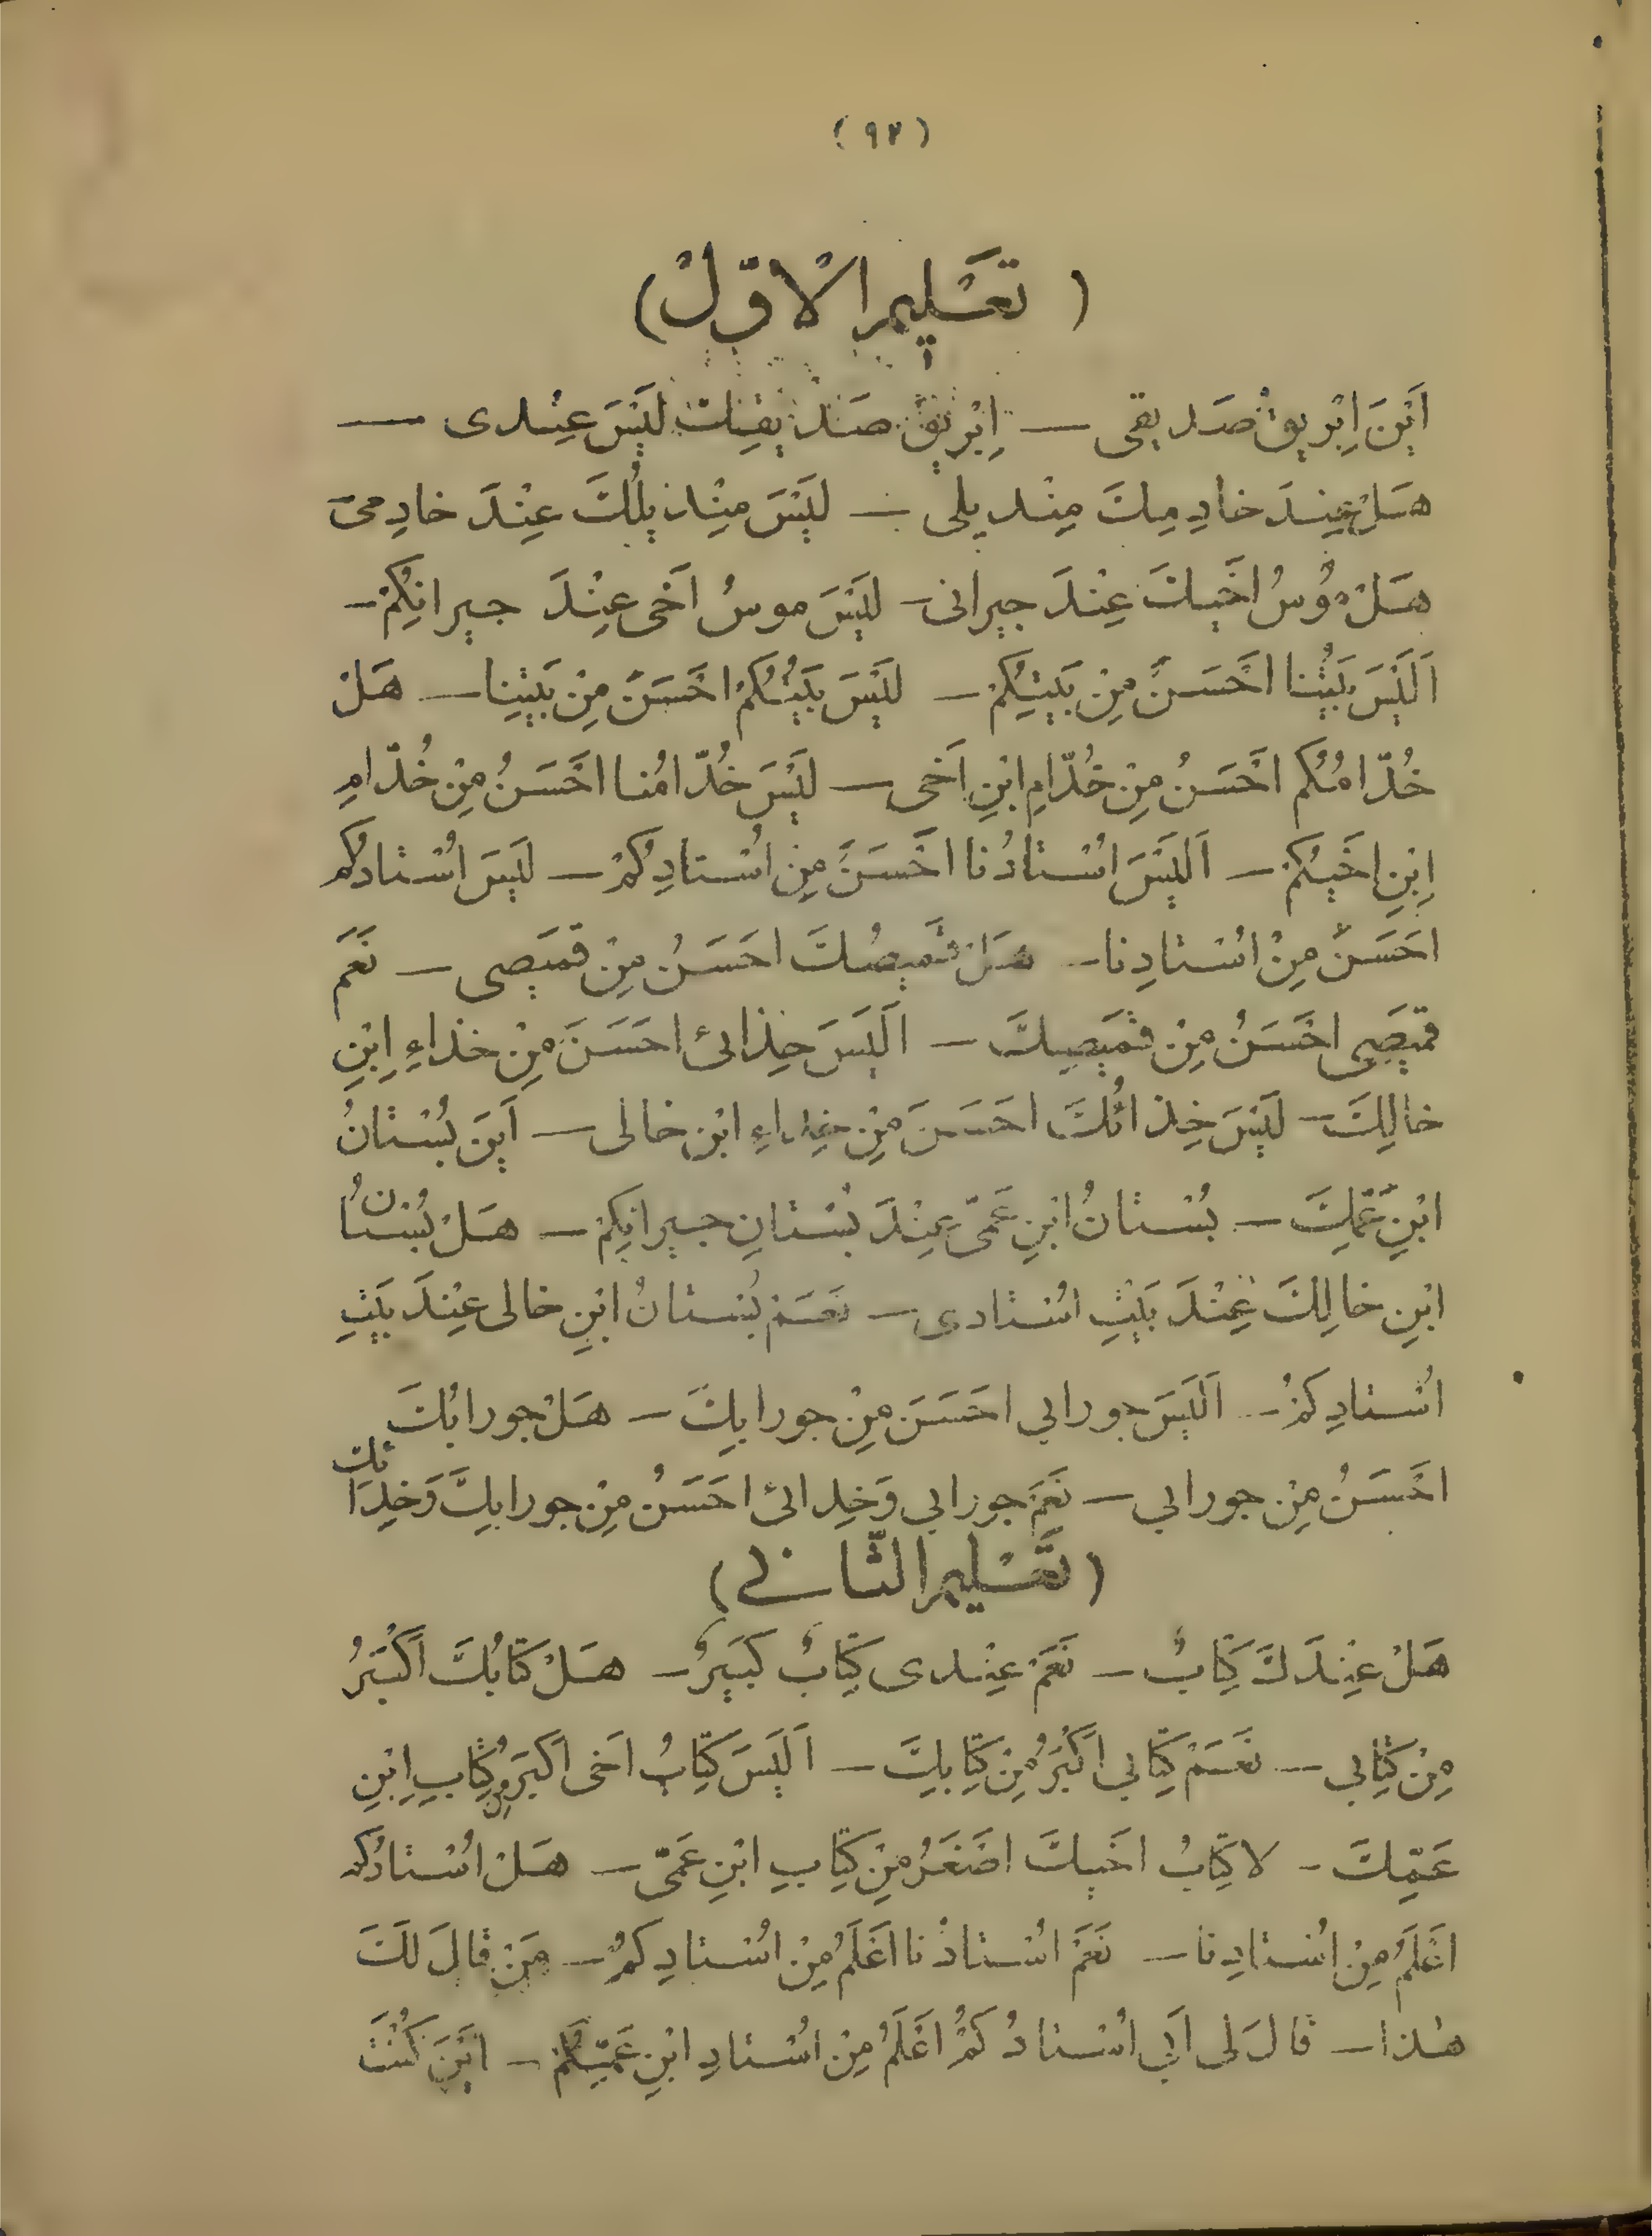 (٩٢)
(تَعْلیمر الْاوّلْ)
اَیْنَ اِبْریقُ صَدیقی — اِبْریقُ صَدیقِكَ لَیْسَ عِنْدی —
هَلْ عِنْدَ خادِمِكَ مِنْدیلی — لَیْسَ مِنْدیلُكَ عِنْدَ خادِمی
هَلْ مُوسُ اَخیكَ عِنْدَ جیرانی — لَیْسَ موسُ اَخی عِنْدَ جیرانِكُمْ —
اَلَیْسَ بَیْتُنا اَحْسَنَ مِنْ بَیْتِكُمْ — لَیْسَ بَیْتُكُمْ اَحْسَنَ مِنْ بَیْتِنا — هَلْ
خُدّامُكُم اَحْسَنُ مِنْ خُدّامِ ابْنِ اَخی — لَیْسَ خُدّامُنا اَحْسَنُ مِنْ خُدّامِ
اِبْنِ اَخیكُمْ — اَلَیْسَ اُسْتادُنا اَحْسَنَ مِنْ اُسْتادِكُمْ — لَیْسَ اُسْتادُكُم
احَسَنَ مِنْ اُسْتادِنا — هَلْ قَمیصُكَ احَسَنُ مِنْ قَمیصی — نَعَمَ
قَمیصی اَحْسَنُ مِنْ قَمیصِكَ — اَلَیَسَ حِذائی احَسَنَ مِنْ خذاءِ اِبْنِ
خالِكَ — لَیْسَ خِذائُكَ احَسَنَ مِنْ خِذاءِ ابْنِ خالی — اَیْنَ بُسْتانُ
ابْنِ عَمِّكَ — بُسْتانُ ابْنِ عَمّی عِنْدَ بُسْتانِ جیرانِكِمْ — هَلْ بُسْتانُ
ابْنِ خالِكَ عِنْدَ بَیْتِ اُسْتادی — نَعَمْ بُسْتانُ ابْنِ خالی عِنْدَ بَیْتِ
اُسْتادِكُمْ — اَلَیْسَ جورابی احَسَنَ مِنْ جورابِكَ — هَلْ جورابُكَ
اَحْسَنُ مِنْ جورابی — نَعَمَ جورابی وَخِدائی احَسَنُ مِنْ جورابِكَ وَخِدَائِكَ
(تَعْلیمر الثّانی)
هَلْ عِنْدَكَ كِتَابٌ — نَعَمْ عِنْدی كِتَابٌ كَبیرٌ — هَلْ كِتَابُكَ اَكْبَرُ
مِنْ كِتَابی — نَعَمْ كِتَابی اَكْبَرُ مِنْ كِتَابِكَ — اَلَیَسَ كِتَابُ اَخی اَكَبَرَ مِنْ كِتَابِ اِبْنِ
عَمِّكَ — لا كِتَابُ اَخیكَ اَصْغَرُ مِنْ كِتَابِ ابْنِ عَمّی — هَلْ اُسْتادُكُم
اَعْلَمُ مِنْ اُسْتادِنا — نَعَمْ اُسْتادُنا اَعْلَمُ مِنْ اُسْتادِكُمْ — مَنْ قالَ لَكَ
هٰذا — قالَ لی اَبی اُسْتادُكُمْ اَعْلَمُ مِنْ اُسْتادِ ابْنِ عَمِّكُمْ — اَیْنَ كُنْتَ